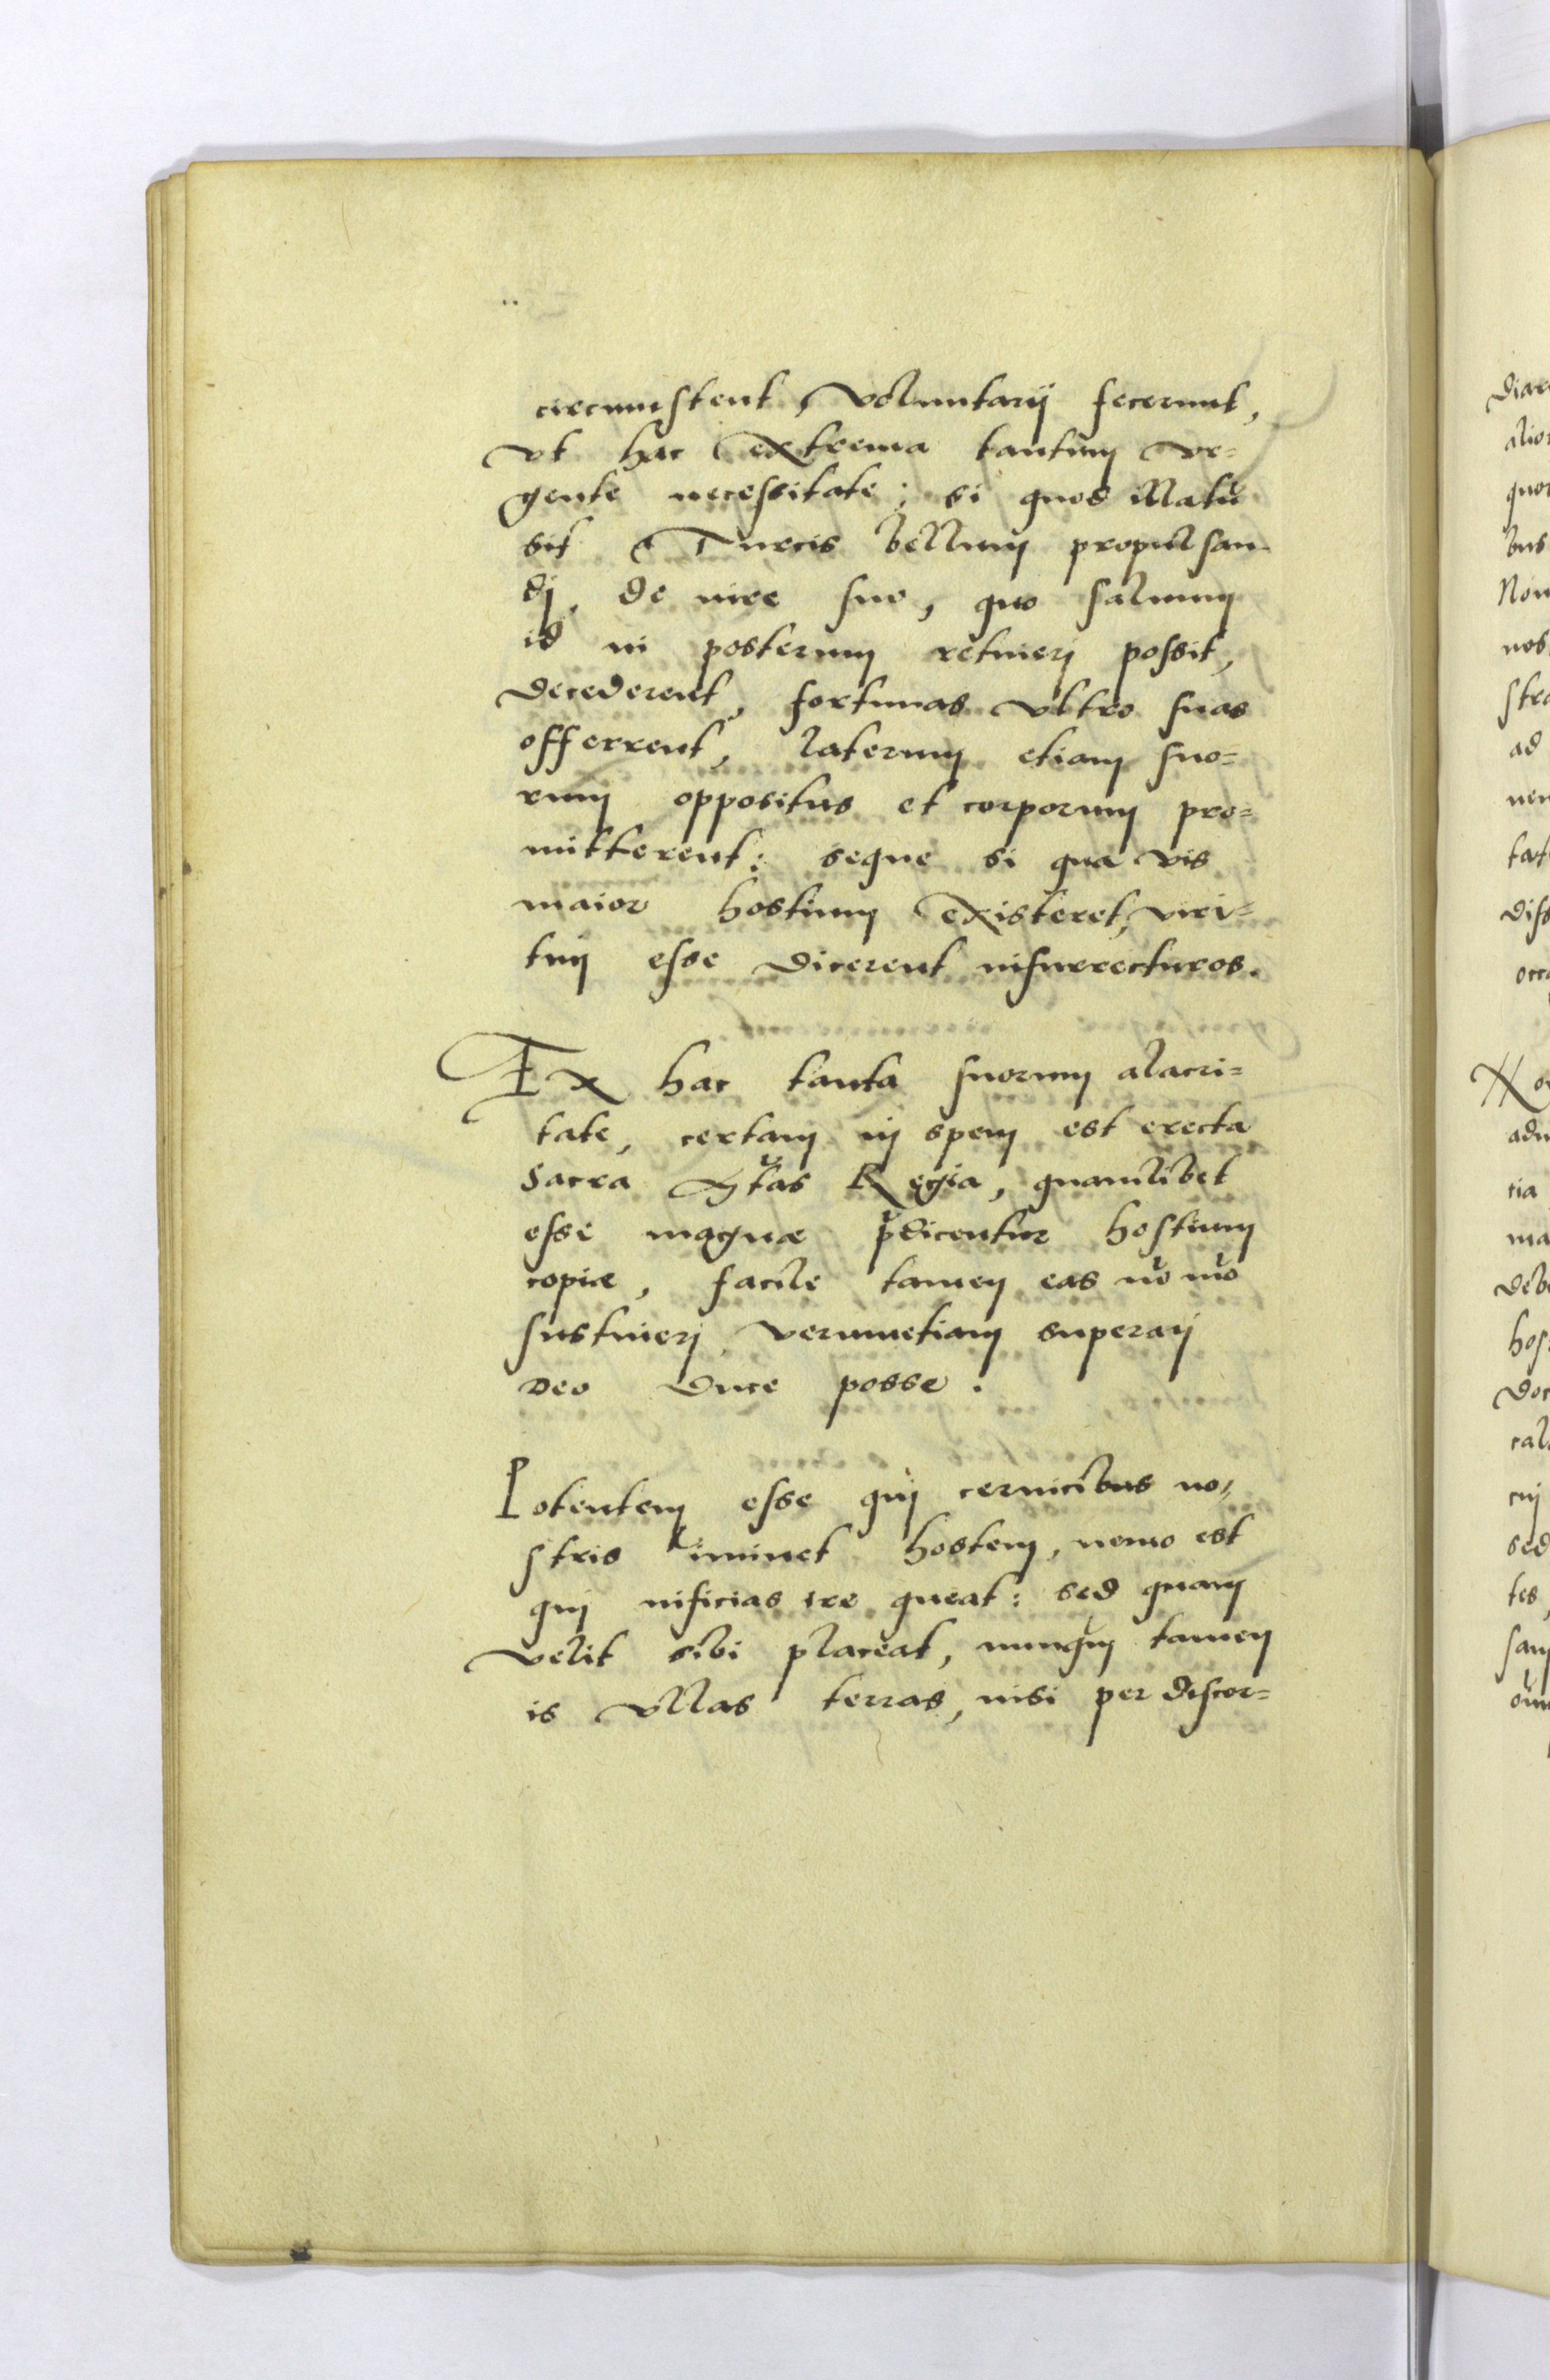 circumstent, voluntarij fecerunt,
vt hac extrema tantum vr=
gente necessitate: si quod illatũ
sit a Turcis bellum propulsan
dj, de iure suo, quo saluum
id in posterum retinerj possit,
decederent, fortunas vltro suas
offerrent, laterum etiam suo=
rum oppositus et corporum pro=
mitterent: seque si qua vis
maior hostium existeret, viri=
tim esse dicerent insurrecturos.
Ex hac tanta suorum alacri=
tate, certam in spem est erecta
Sacra Mtas Regia, quamlibet
esse magnæ p̃dicentur hostium
copiæ, facile tamen eas nõ mõ
sustinerj verumetiam superarj
Deo Duce posse.
Potentem esse quj ceruicibus no,
stris iminet hostem, nemo est
quj inficias ire queat: sed quam
velit sibi placeat, nunqũ tamen
is vllas terras, nisi per discor=
diar
alior
quor
bus
Non
nos
stra
ad
nem
tat
diss
occ
Non
adu
cia
ma
deb
hos
doc
cal
cuj
sed
tes,
sam
oĩm